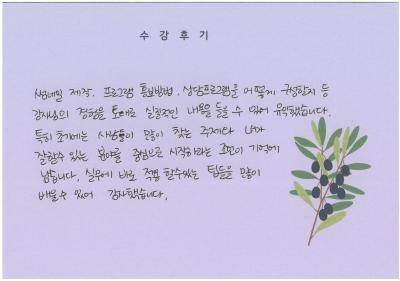 수강후기
썸네일 제작, 프로그램 홍보방법, 상담프로그램을 어떻게 구성할지 등
강사님의 경험을 토대로 실질적인 내용을 들을 수 있어 유익했습니다.
특히 초기에는 사람들이 많이 찾는 주제와 내가
잘할수 있는 분야를 중심으로 시작하라는 조언이 기억에
남습니다. 실무에 바로 적용 할수있는 팁들을 많이
배울수 있어 감사했습니다.